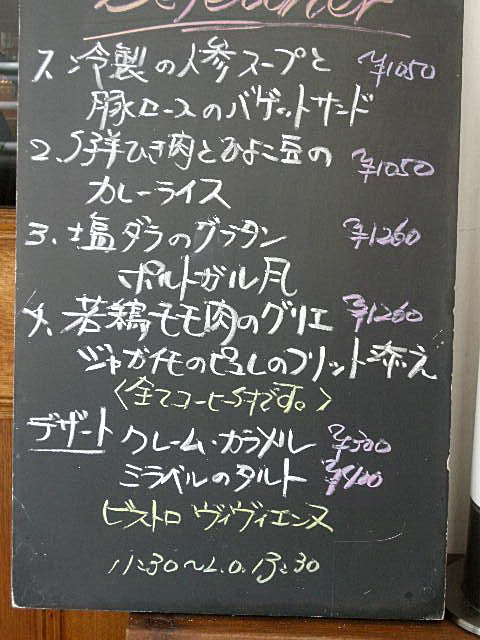 1. 冷製の人参スープと ¥1050
豚ロースのバゲットサンド
2. 仔羊ひき肉とひよこ豆の ¥1050
カレーライス
3. 塩ダラのグラタン ¥1260
ポルトガル風
4. 若鶏モモ肉のグリエ ¥1260
ジャガイモのピュレのフリット添え
〈全てコーヒー付です。〉
デザート クレーム・カラメル ¥500
ミラベルのタルト
ビストロ ヴィヴィエンヌ
11:30〜L.O. 13:30